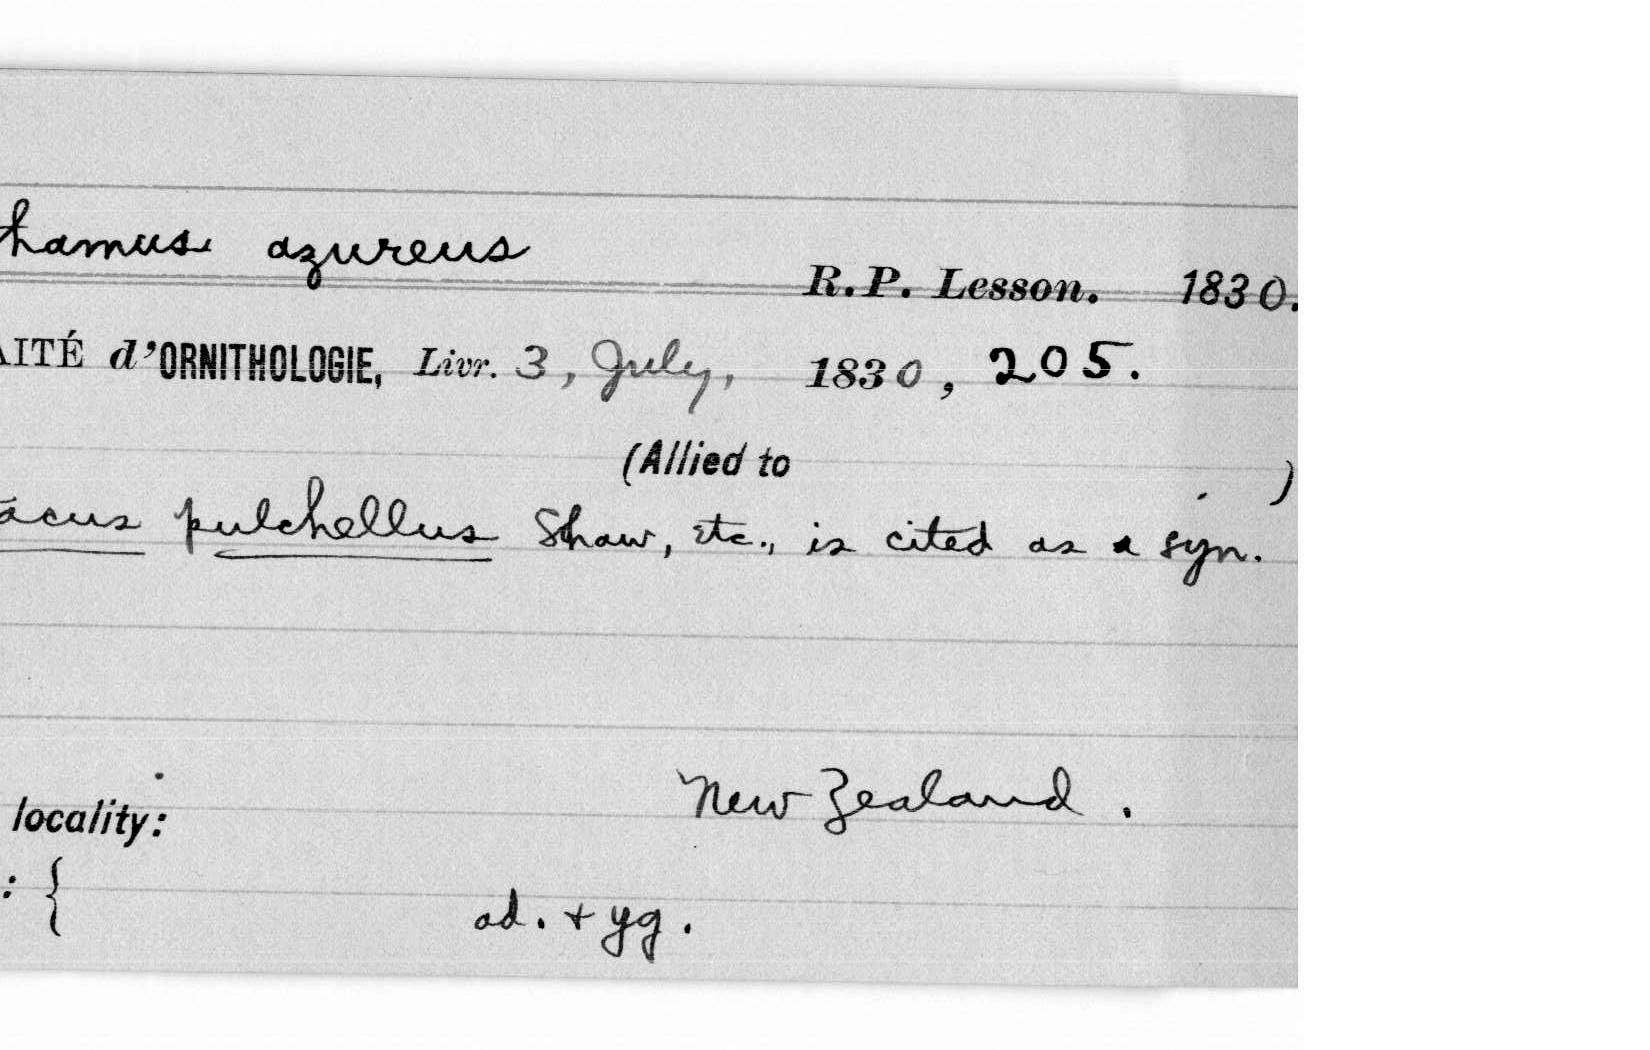 hamus azureus
R.P. Lesson. 1830.
AITÉ d'ORNITHOLOGIE, Livr. 3, July, 1830, 205.
(Allied to )
acus pulchellus Shaw, etc., is cited as a syn.
locality: New Zealand.
: { ad. + yg.